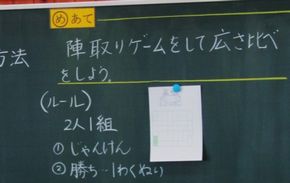 めあて
陣取りゲームをして広さ比べ
をしよう。
方法
(ルール)
2人1組
①じゃんけん
②勝ち‥1わくぬり